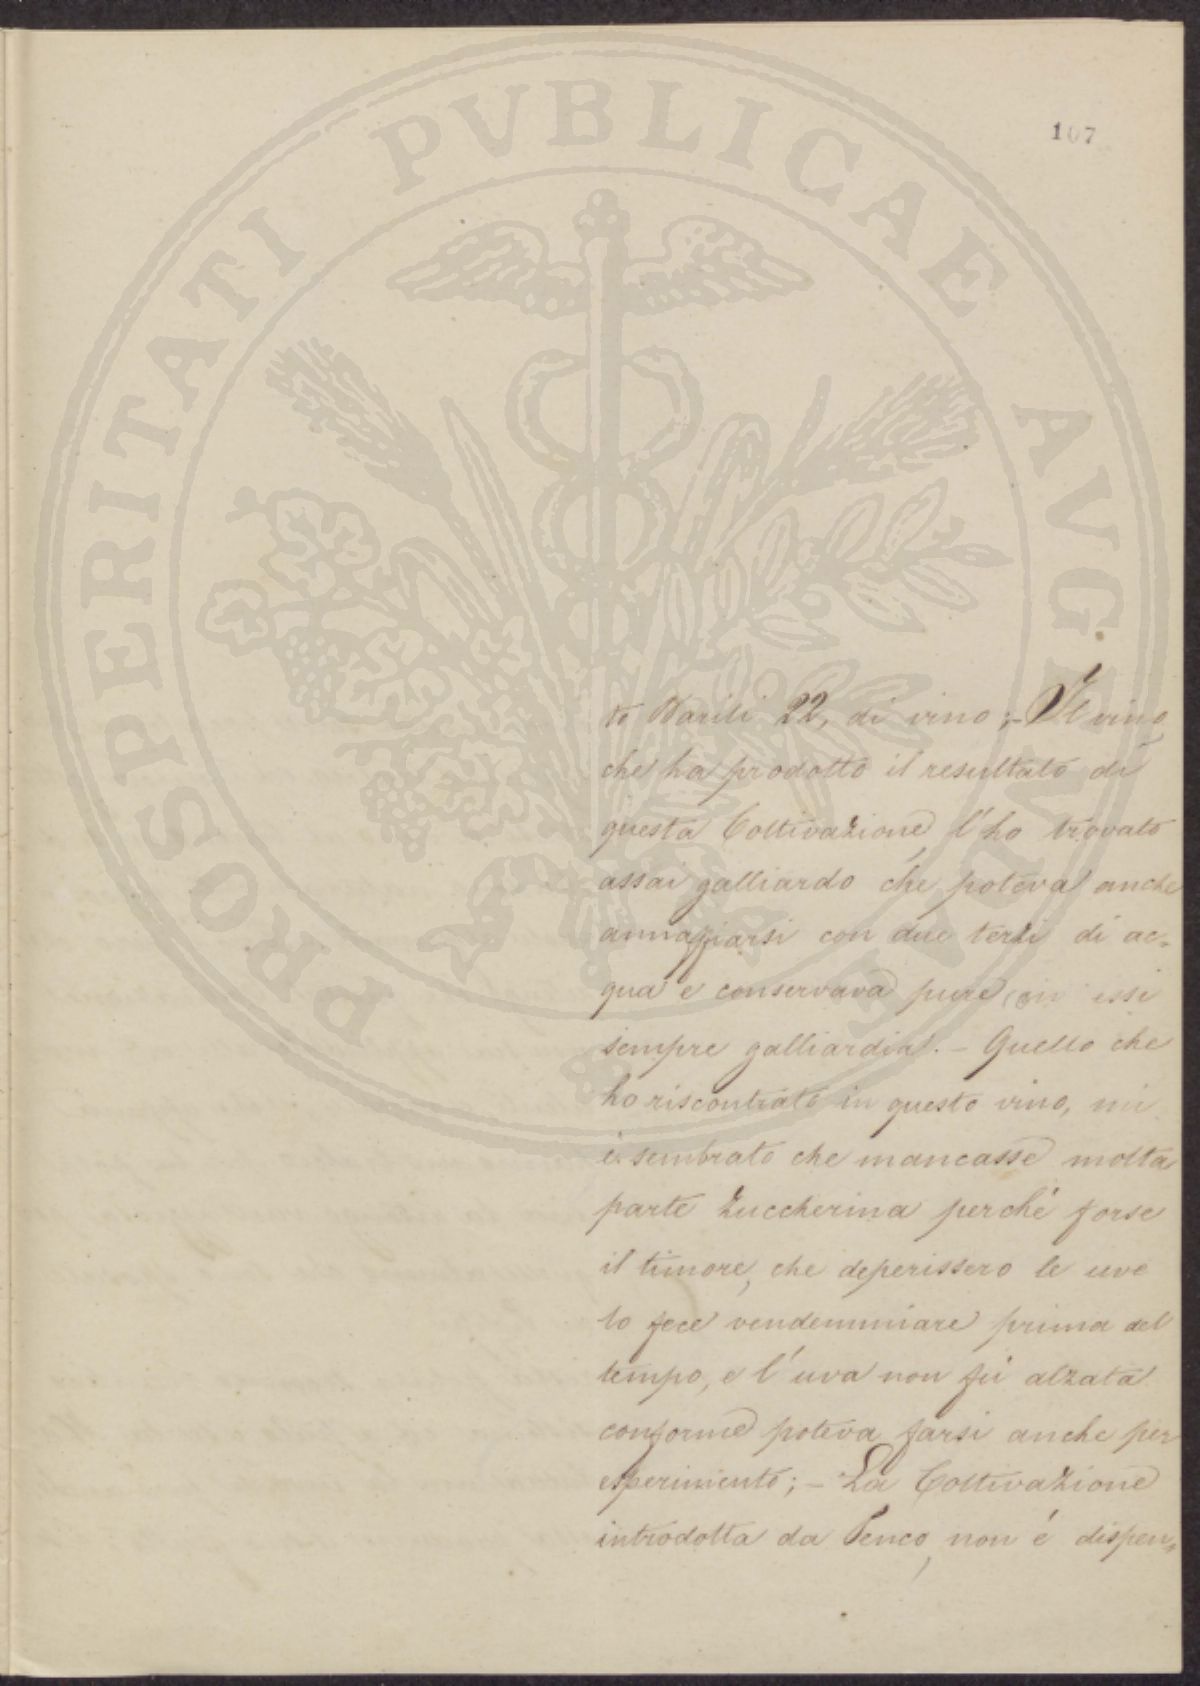 107
PROSPERITATI PVBLICAE AVGENDAE
to Barili 22, di vino;- Il vino
che ha prodotto il resultato di
questa Coltivazione, l'ho trovato
assai galliardo che poteva anche
annaffiarsi con due terzi di ac=
qua e conservava pure con essi
sempre galliardia.- Quello che
ho riscontrato in questo vino, mi
è sembrato che mancasse molta
parte zuccherina perché forse
il timore, che deperissero le uve
lo fece vendemmiare prima del
tempo, e l'uva non fù alzata
conforme poteva farsi anche per
esperimento;- La Coltivazione
introdotta da Penco, non é dispen=